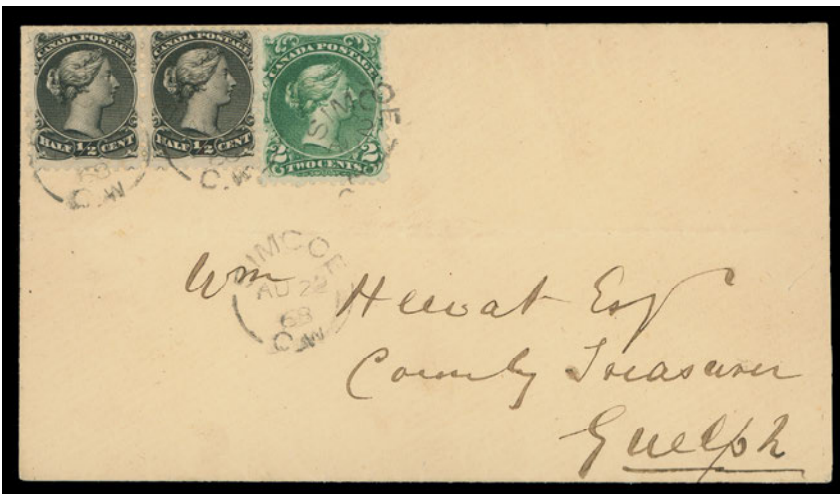 CANADA POSTAGE
HALF 1/2 CENT
CANADA POSTAGE
HALF 1/2 CENT
CANADA POSTAGE
2 TWO CENTS 2
68
C.W
C.W
SIMCOE
SIMCOE
AU 22
68
C.W
Wm Hewat Esqr
County Treasurer
Guelph